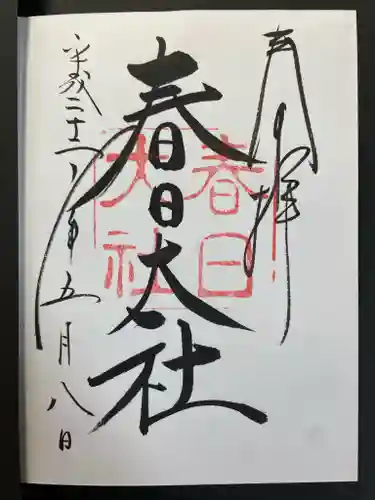 奉拝
春日大社
春日
大社
平成二十八年五月八日